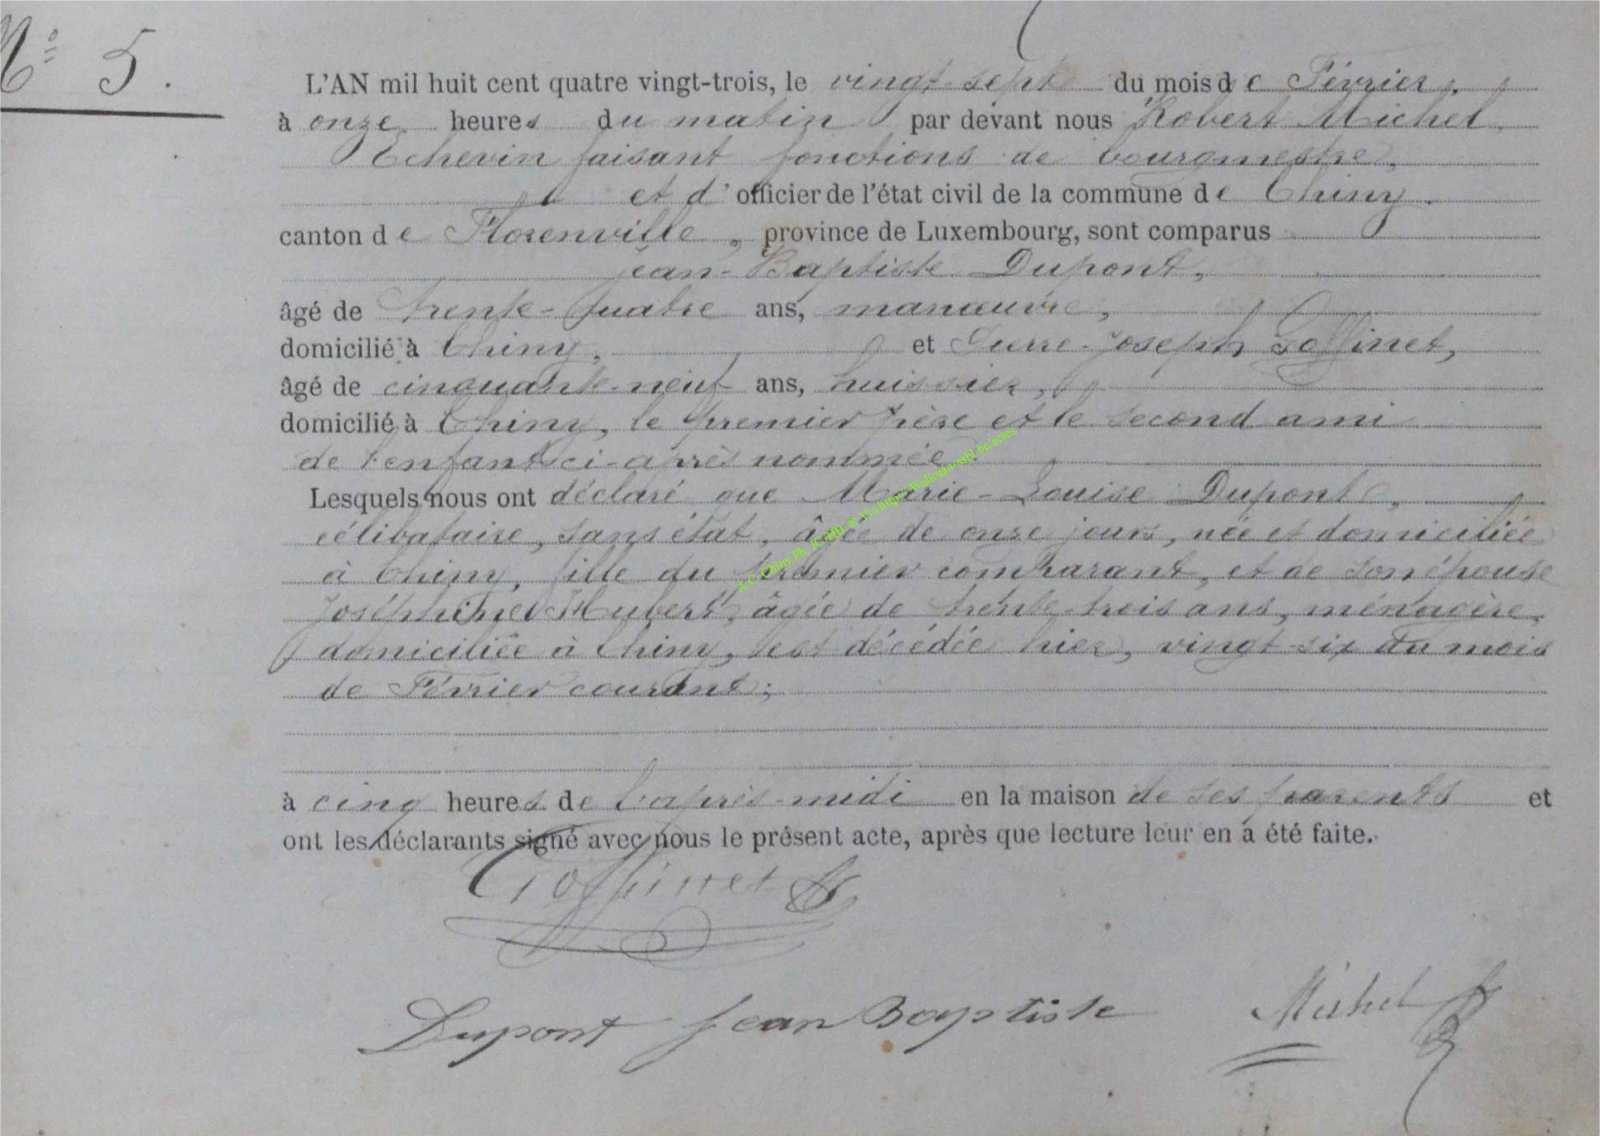 N° 5.
L'AN mil huit cent quatre vingt-trois, le vingt-sept du mois de Février,
à onze heures du matin par devant nous Robert Michel,
Echevin faisant fonctions de bourgmestre,
et d'officier de l'état civil de la commune de Chiny,
canton de Florenville, province de Luxembourg, sont comparus
Jean-Baptiste Dupont,
âgé de trente-quatre ans, manœuvre,
domicilié à Chiny, et Pierre-Joseph Goffinet,
âgé de cinquante-neuf ans, huissier,
domicilié à Chiny, le premier père et le second ami
de l'enfant ci-après nommée
Lesquels nous ont déclaré que Marie-Louise Dupont,
célibataire, sans état, âgée de onze jours, née et domiciliée
à Chiny, fille du premier comparant, et de son épouse
Joséphine Hubert, âgée de trente-trois ans, ménagère,
domiciliée à Chiny, est décédée hier, vingt-six du mois
de Février courant;
à cinq heures de l'après-midi en la maison de ses parents et
ont les déclarants signé avec nous le présent acte, après que lecture leur en a été faite.
Goffinet
Dupont Jean Baptiste Michel